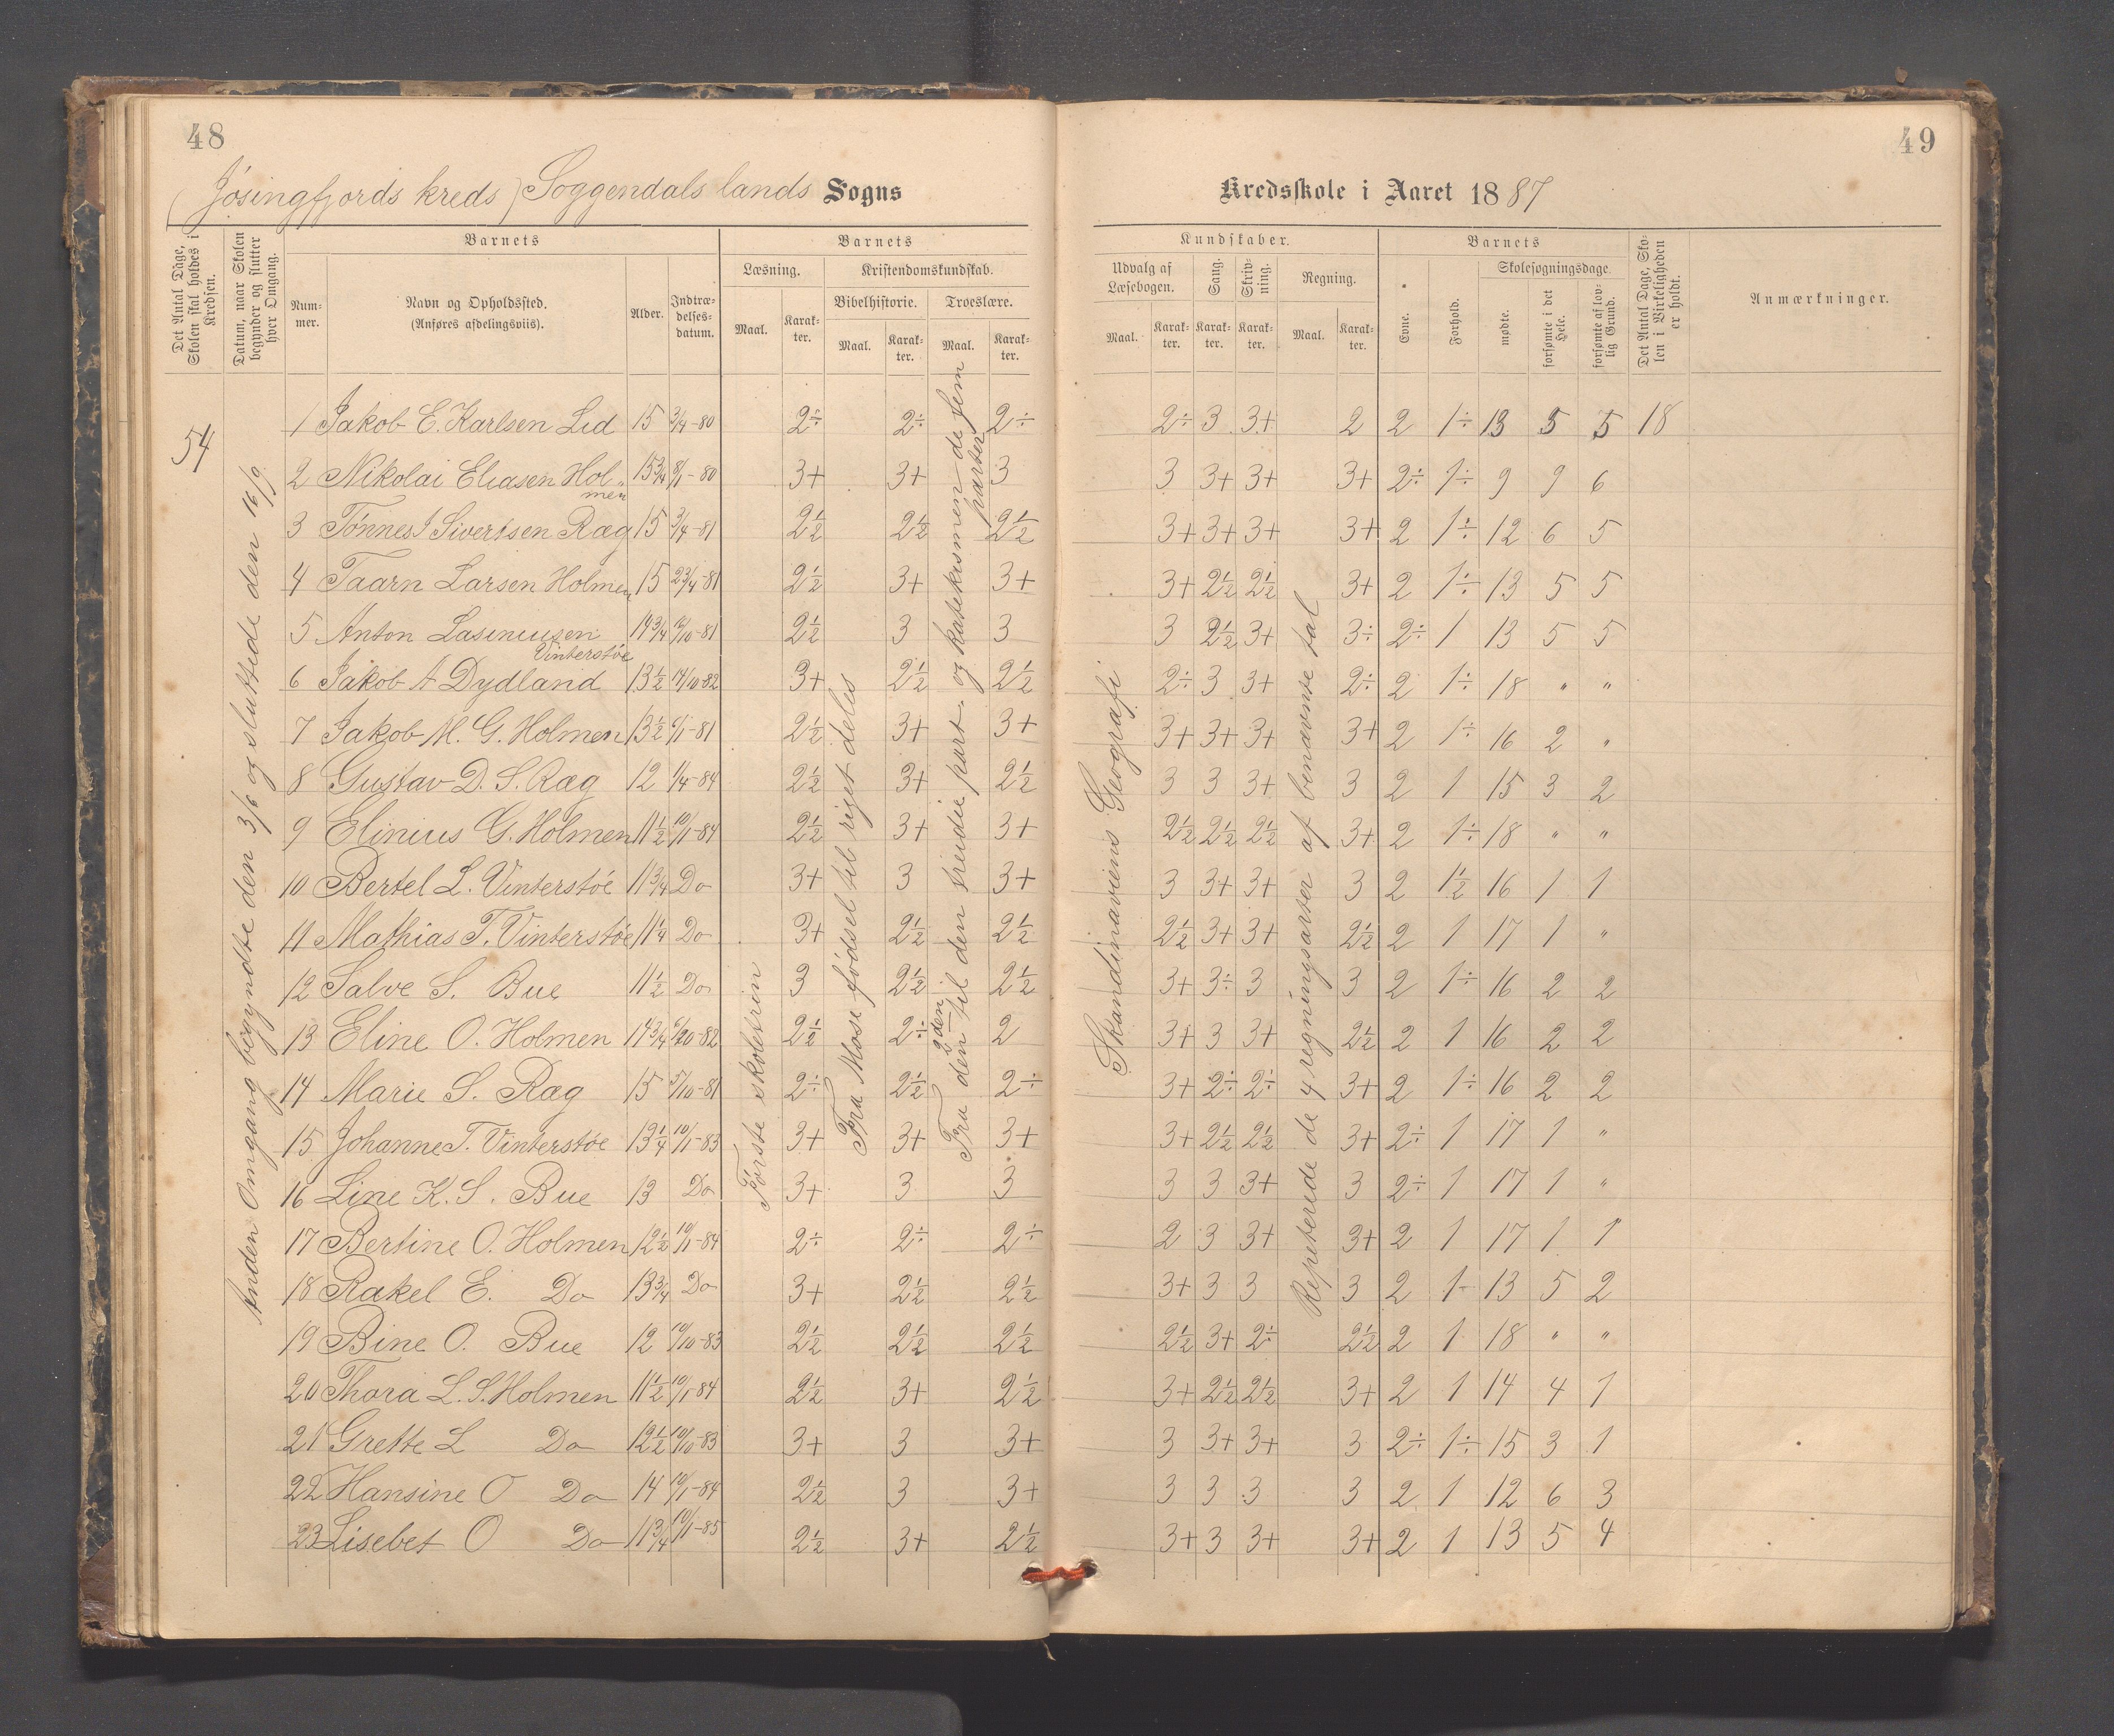 48
49
(Jøsingfjords kreds) Soggendals lands Sogns
Kredsskole i Aaret 1887
Det Antal Dage, Skolen skal holdes i Kredsen.
Datum, naar Skolen begynder og slutter hver Omgang.
Barnets
Nummer.
Navn og Opholdssted.
(Anføres afdelingsviis).
Alder.
Indtrædelsesdatum.
Barnets
Læsning.
Maal.
Karakter.
Kristendomskundskab.
Bibelhistorie.
Maal.
Karakter.
Troeslære.
Maal.
Karakter.
Kundskaber.
Udvalg af Læsebogen.
Maal.
Karakter.
Sang.
Karakter.
Skrivning.
Karakter.
Regning.
Maal.
Karakter.
Barnets
Evne.
Forhold.
Skolesøgningsdage.
mødte.
forsømte i det Hele.
forsømte af lovlig Grund.
Det Antal Dage, Skolen i Virkeligheden er holdt.
Anmærkninger.
54
Anden Omgang begyndte den 3/6 og sluttede den 16/9
Første skoletrin
Fra Mose fødsel til riget deles
Fra den 2den til den tredie part. og katekismen de fem parter
Skandinaviens Geografi
Repeterede de 4 regningsarter af benævnte tal
1 Jakob E. Karlsen Lid 15 3/4-80 2÷ 2÷ 2÷ 2÷ 3 3+ 2 2 1÷ 13 5 5 18
2 Nikolai Eliasen Holmen 15 3/4 8/1-80 3+ 3+ 3 3 3+ 3+ 3+ 2÷ 1÷ 9 9 6
3 Tønnes S Sivertsen Ræg 15 3/4-81 2½ 2½ 2½ 3+ 3+ 3+ 3+ 2 1÷ 12 6 5
4 Taarn Larsen Holmen 15 23/4-81 2½ 3+ 3+ 3+ 2½ 2½ 3+ 2 1÷ 13 5 5
5 Anton Lasinusen Vinterstøe 14 3/4 19/10-81 2½ 3 3 3 2½ 3+ 3÷ 2÷ 1 13 5 5
6 Jakob A Dydland 13½ 14/10-82 3+ 2½ 2½ 2÷ 3 3+ 2÷ 2 1÷ 18 " "
7 Jakob M. G. Holmen 13½ 6/1-81 2½ 3+ 3+ 3+ 3+ 3+ 3+ 2 1÷ 16 2 "
8 Gustav D. S. Ræg 12 1/4-84 2½ 3+ 2½ 3 3 3+ 3 2 1 15 3 2
9 Elinius G. Holmen 11½ 10/1-84 2½ 3+ 3+ 2½ 2½ 2½ 3+ 2 1÷ 18 " "
10 Bertel L. Vinterstøe 11 3/4 Do 3+ 3 3+ 3 3+ 3+ 3 2 1½ 16 1 1
11 Mathias T. Vinterstøe 11¼ Do 3+ 2½ 2½ 2½ 3+ 3+ 2½ 2 1 17 1 "
12 Salve S. Bue 11½ Do 3 2½ 2½ 3+ 3÷ 3 3 2 1÷ 16 2 2
13 Eline O. Holmen 14 3/4 6/10-82 2½ 2÷ 2 3+ 3 3+ 2½ 2 1 16 2 2
14 Marie S. Ræg 15 5/10-81 2÷ 2½ 2÷ 3+ 2÷ 2÷ 3+ 2 1÷ 16 2 2
15 Johanne T. Vinterstøe 13¼ 10/11-83 3+ 3+ 3+ 3+ 2½ 2½ 3+ 2÷ 1 17 1 "
16 Line K. S. Bue 13 Do 3+ 3 3 3 3 3+ 3 2÷ 1 17 1 "
17 Bertine O. Holmen 12½ 10/1-84 2÷ 2÷ 2÷ 2 3 3+ 3+ 2 1 17 1 1
18 Rakel E. Do 13 3/4 Do 3+ 2½ 2½ 3+ 3 3 3 2 1÷ 13 5 2
19 Bine O. Bue 12 10/10-83 2½ 2½ 2½ 2½ 3+ 2÷ 2½ 2 1 18 " "
20 Thora L. S. Holmen 11½ 10/1-84 2½ 3+ 2½ 3+ 2½ 2½ 3+ 2 1 14 4 1
21 Grette L Do 12½ 10/10-83 3+ 3 3+ 3 3+ 3+ 3 2÷ 1÷ 15 3 1
22 Hansine O Do 14 10/1-84 2½ 3 3+ 3 3 3 3 2 1 12 6 3
23 Lisebet O Do 11 3/4 10/1-85 2½ 3+ 2½ 3+ 3 3+ 3+ 2 1 13 5 4